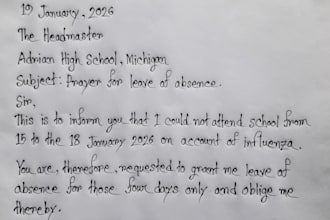 19 January, 2026
The Headmaster
Adrian High School, Michigan
Subject: Prayer for leave of absence.
Sir,
This is to inform you that I could not attend school from
15 to the 18 January 2026 on account of influenza.
You are, therefore, requested to grant me leave of
absence for those four days only and oblige me
thereby.